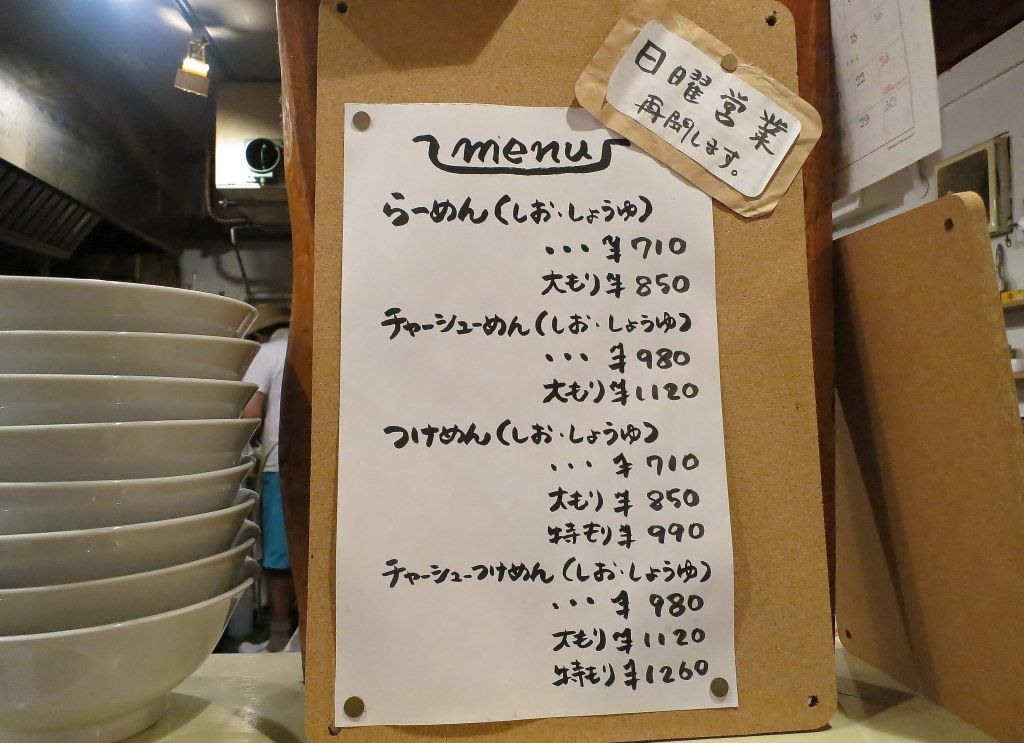 日曜営業
再開します。
menu
らーめん(しお・しょうゆ)
・・・ ¥710
大もり ¥850
チャーシューめん(しお・しょうゆ)
・・・ ¥980
大もり ¥1120
つけめん(しお・しょうゆ)
・・・ ¥710
大もり ¥850
特もり ¥990
チャーシューつけめん(しお・しょうゆ)
・・・ ¥980
大もり ¥1120
特もり ¥1260
15 16
22 23
29 30